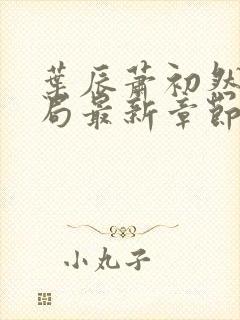 葉辰蕭初然
局最新章節
小丸子